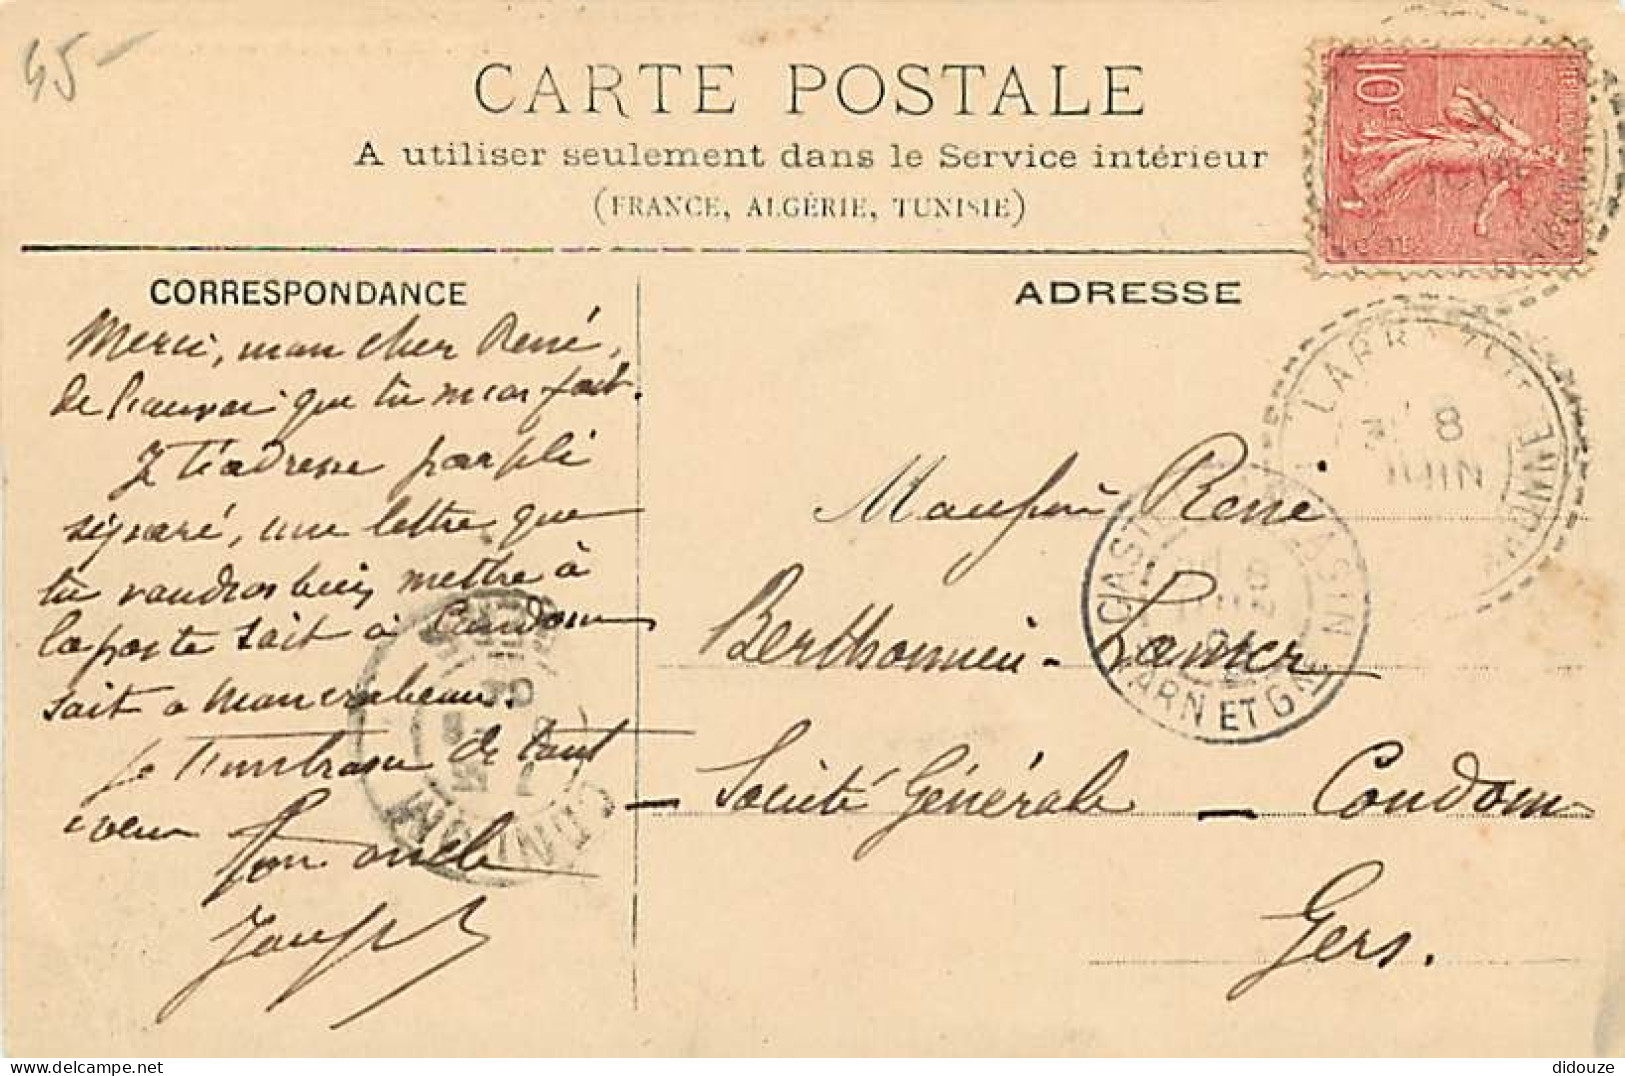 45-
CARTE POSTALE
A utiliser seulement dans le Service intérieur
(FRANCE, ALGÉRIE, TUNISIE)
10c
CORRESPONDANCE
ADRESSE
Merci, mon cher René,
de l'envoi que tu m'as fait.
Je t'adresse par pli
séparé, une lettre que
tu voudras bien mettre à
la poste soit à Condom
soit à Moncrabeau.
Je t'embrasse de tout
cœur
Ton oncle
Joseph
LARRAZET
8
JUIN
GARONNE
CASTELSARRASIN
TARN ET GNE
CONDOM
Monsieur René
Berthoumieu-
Société Générale - Condom
Gers.
didouze